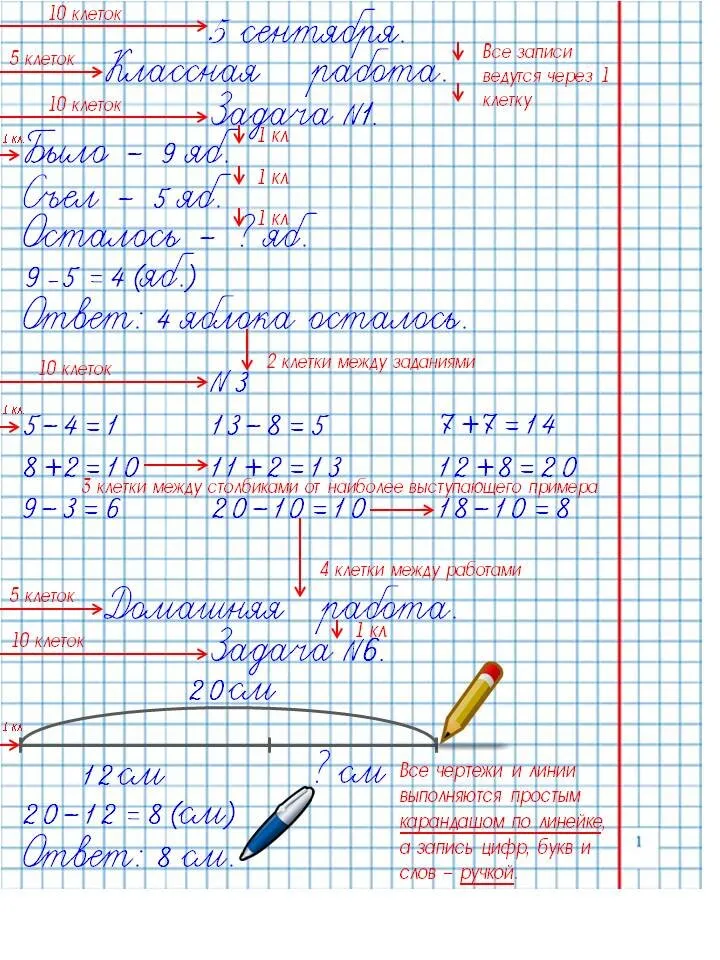 10 клеток
5 сентября.
5 клеток
Классная работа.
Все записи
ведутся через 1
клетку
10 клеток
Задача №1.
1 кл.
1 кл
Было – 9 яб.
1 кл
Съел – 5 яб.
1 кл
Осталось – ? яб.
9 – 5 = 4 (яб.)
Ответ: 4 яблока осталось.
2 клетки между заданиями
10 клеток
№ 3
1 кл.
5 – 4 = 1 13 – 8 = 5 7 + 7 = 14
8 + 2 = 10 11 + 2 = 13 12 + 8 = 20
3 клетки между столбиками от наиболее выступающего примера
9 – 3 = 6 20 – 10 = 10 18 – 10 = 8
4 клетки между работами
5 клеток
Домашняя работа.
1 кл
10 клеток
Задача №6.
20 см
1 кл.
12 см ? см
20 – 12 = 8 (см)
Ответ: 8 см.
Все чертежи и линии
выполняются простым
карандашом по линейке,
а запись цифр, букв и
слов – ручкой.
1